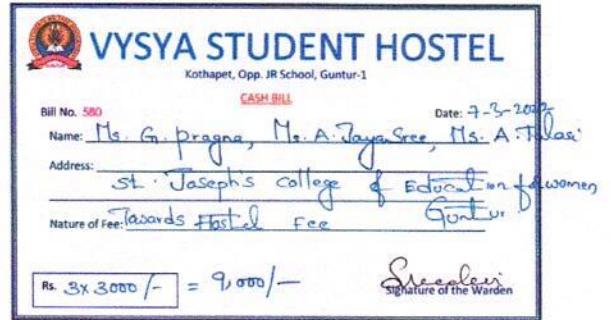 VYSYA STUDENT HOSTEL
Kothapet, Opp. JR School, Guntur-1
CASH BILL
Bill No. 580 Date: 7-3-2022
Name: Ms. G. pragna, Ms. A. Jaya Sree, Ms. A. Tulasi
Address:
St. Joseph's College of Education for women
Guntur
Nature of Fee: Towards Hostel Fee
Rs. 3x3000/- = 9,000/-
Sreedevi
Signature of the Warden